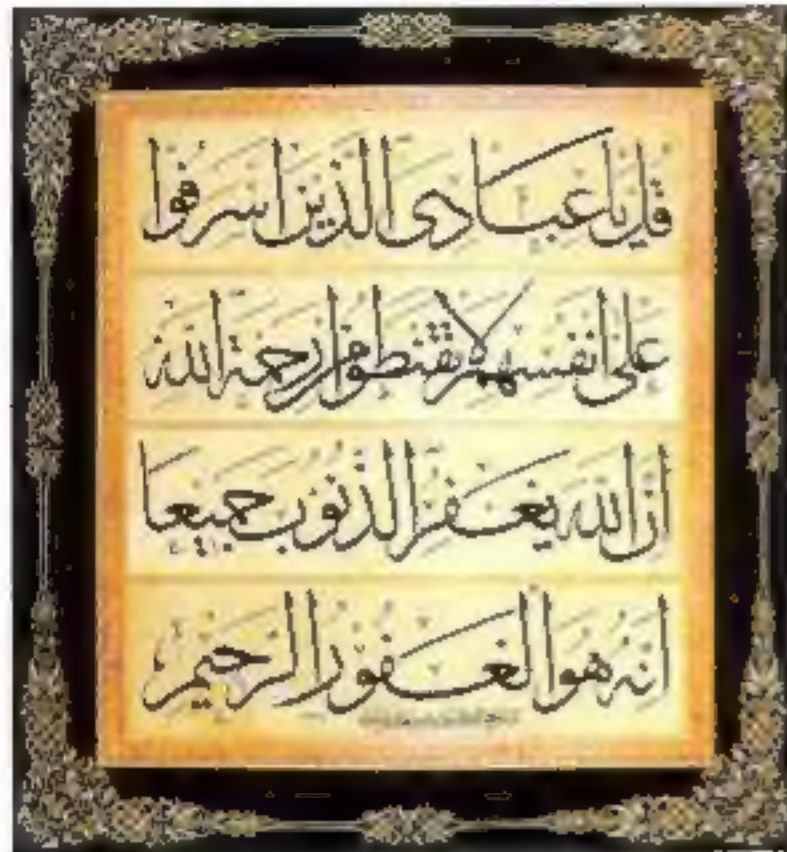 قل يا عبادى الذين اسرفوا
على انفسهم لا تقنطوا من رحمة الله
ان الله يغفر الذنوب جميعا
انه هو الغفور الرحيم